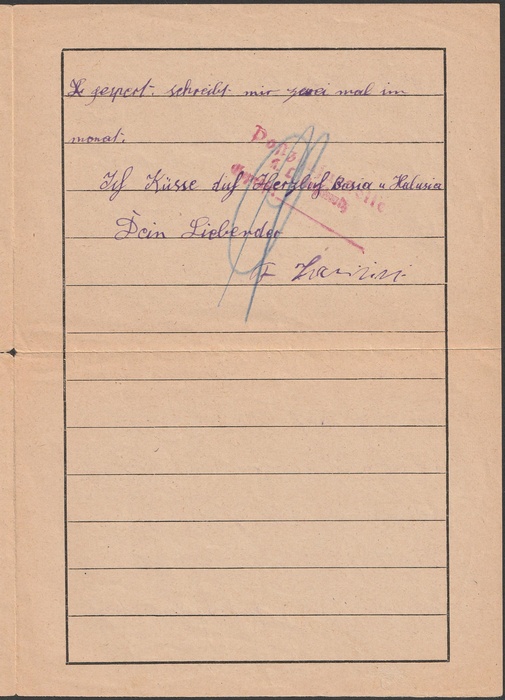 gespert. schreibt mir zwei mal im
monat.
Ich Küsse dich Herzlich Basia u Halusia
Dein Liebender